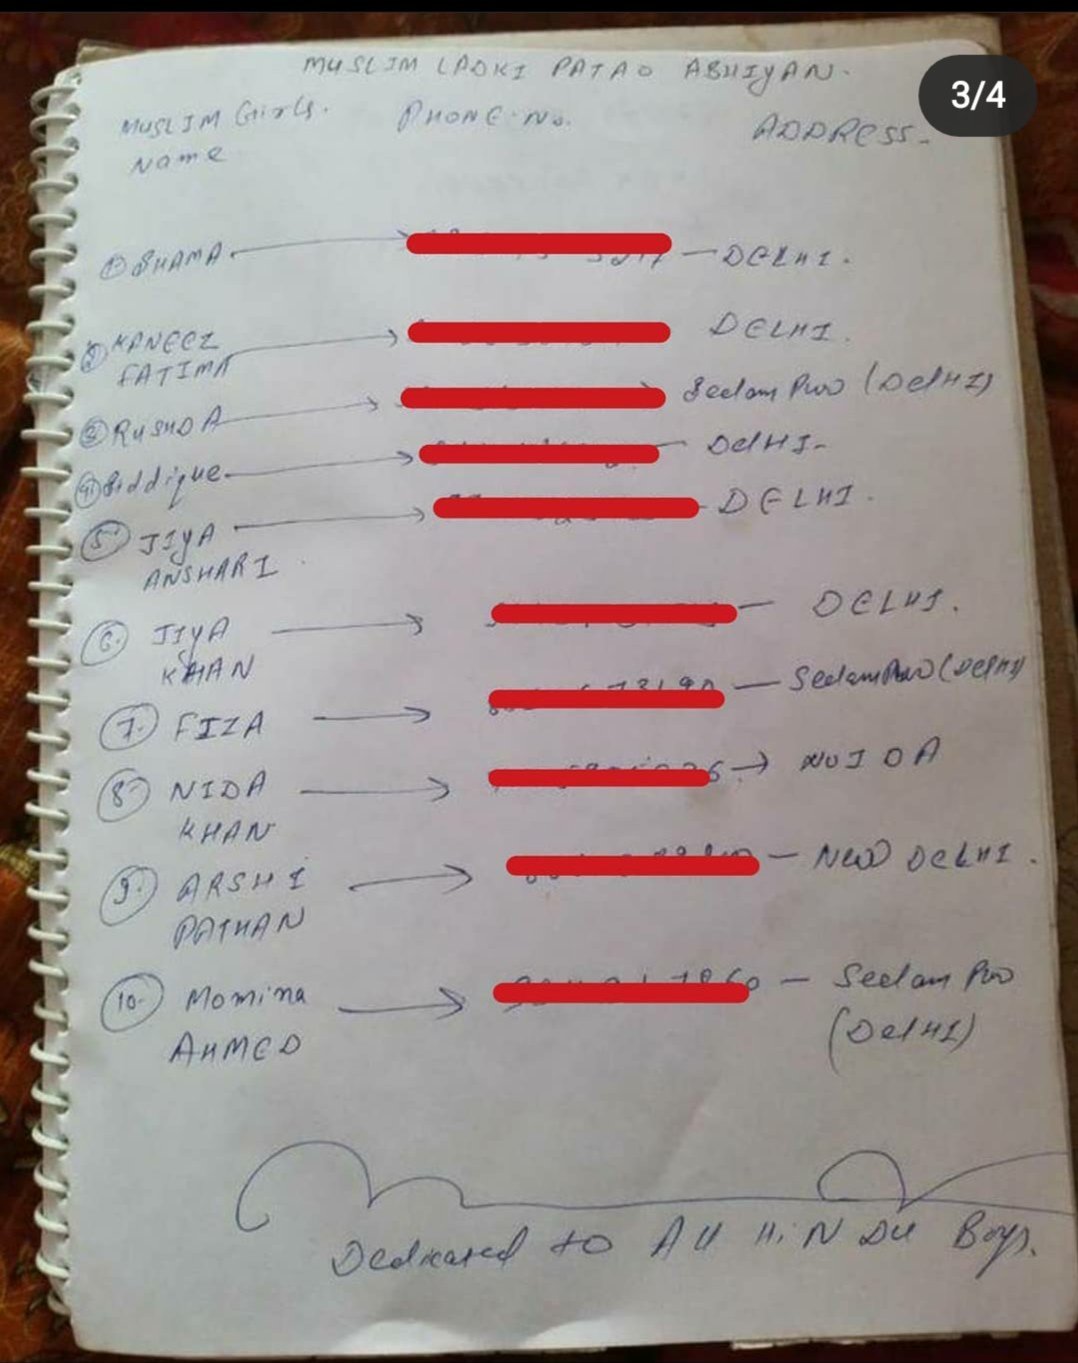 3/4
MUSLIM LADKI PATAO ABHIYAN.
MUSLIM Girls. PHONE No. ADDRESS-
Name
1 SHAMA — DELHI.
2 KANEEZ DELHI.
FATIMA
3 RUSHDA Seelam Pur (DelHI)
4 Siddique DelHI-
5 JIYA - DELHI.
ANSHARI
6. JIYA — DELHI.
KHAN
7. FIZA — Seelam Pur (Delhi)
8 NIDA → NOIDA
KHAN
9. ARSHI — NeW DeLHI.
PATHAN
10. Momina — Seelam Pur
AHMED (DelHI)
Dedicated to All HiNDU Boys.